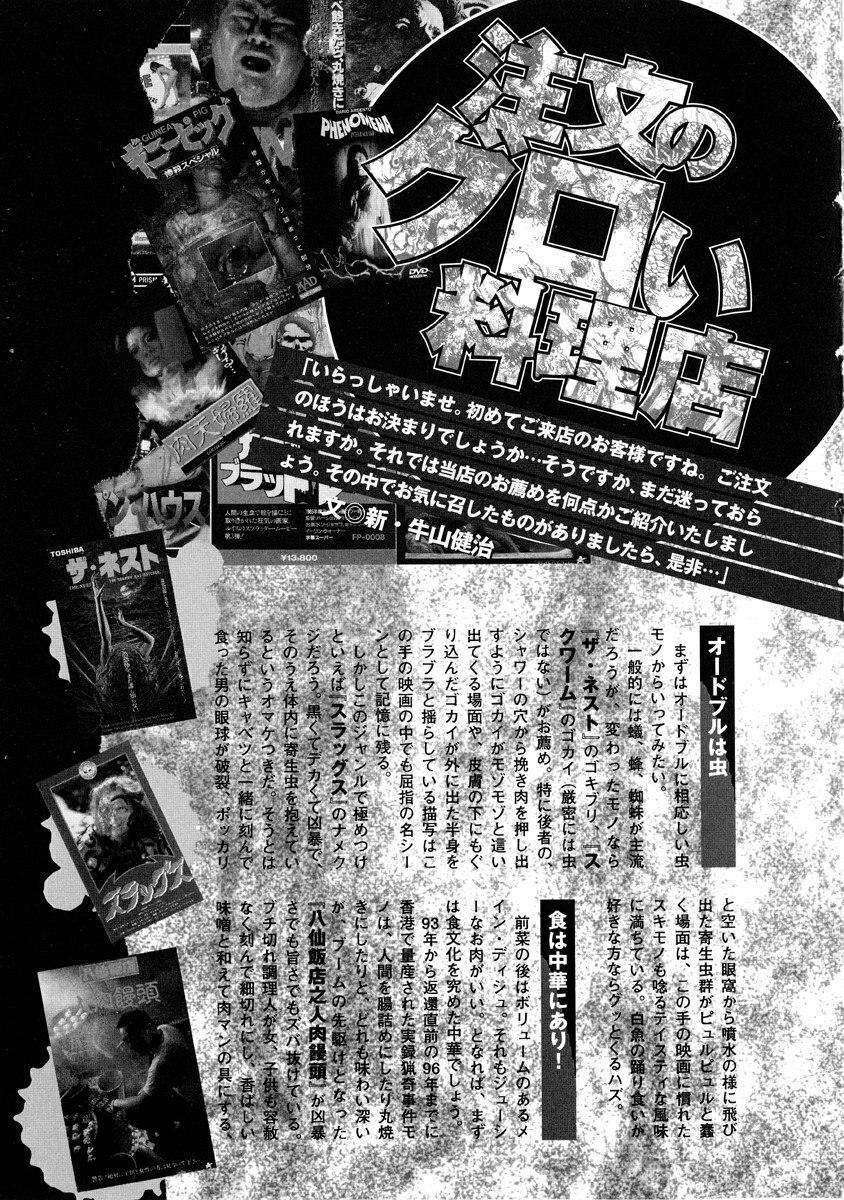 注文の
グロい
料理店
べ飽きたら、丸焼きに
GUINEA PIG
ギニーピッグ
惨殺スペシャル
DARIO ARGENTO
PHENOMENA
DVD
MAD
PRISM
肉天婦羅
ハウス
ザ
ブラッド
人間の生血で絵を描くことに
取り憑かれた狂気の画家、
¥13,800
FP-0008
字幕スーパー
「いらっしゃいませ。初めてご来店のお客様ですね。ご注文
のほうはお決まりでしょうか…そうですか、まだ迷っておら
れますか。それでは当店のお薦めを何点かご紹介いたしまし
ょう。その中でお気に召したものがありましたら、是非…」
文◎新・牛山健治
TOSHIBA
ザ・ネスト
スラッグス
饅頭
オードブルは虫
まずはオードブルに相応しい虫
モノからいってみたい。
一般的には蟻、蜂、蜘蛛が主流
だろうが、変わったモノなら
『ザ・ネスト』のゴキブリ、『ス
クワーム』のゴカイ（厳密には虫
ではない）がお薦め。特に後者の、
シャワーの穴から挽き肉を押し出
すようにゴカイがモゾモゾと這い
出てくる場面や、皮膚の下にもぐ
り込んだゴカイが外に出た半身を
ブラブラと揺らしている描写はこ
の手の映画の中でも屈指の名シー
ンとして記憶に残る。
しかしこのジャンルで極めつけ
といえば『スラッグス』のナメク
ジだろう。黒くてデカくて凶暴で、
そのうえ体内に寄生虫を抱えてい
るというオマケつきだ。そうとは
知らずにキャベツと一緒に刻んで
食った男の眼球が破裂、ポッカリ
と空いた眼窩から噴水の様に飛び
出た寄生虫群がピュルピュルと蠢
く場面は、この手の映画に慣れた
スキモノも唸るテイスティな風味
に満ちている。白魚の踊り食いが
好きな方ならグッとくるハズ。
食は中華にあり！
前菜の後はボリュームのあるメ
イン・ディシュ。それもジューシ
ーなお肉がいい。となれば、まず
は食文化を究めた中華でしょう。
93年から返還直前の96年までに
香港で量産された実録猟奇事件モ
ノは、人間を腸詰めにしたり丸焼
きにしたりと、どれも味わい深い
が、ブームの先駆けとなった
『八仙飯店之人肉饅頭』が凶暴
さでも旨さでもズバ抜けている。
ブチ切れ調理人が女、子供も容赦
なく刻んで細切れにし、香ばしい
味噌と和えて肉マンの具にする。